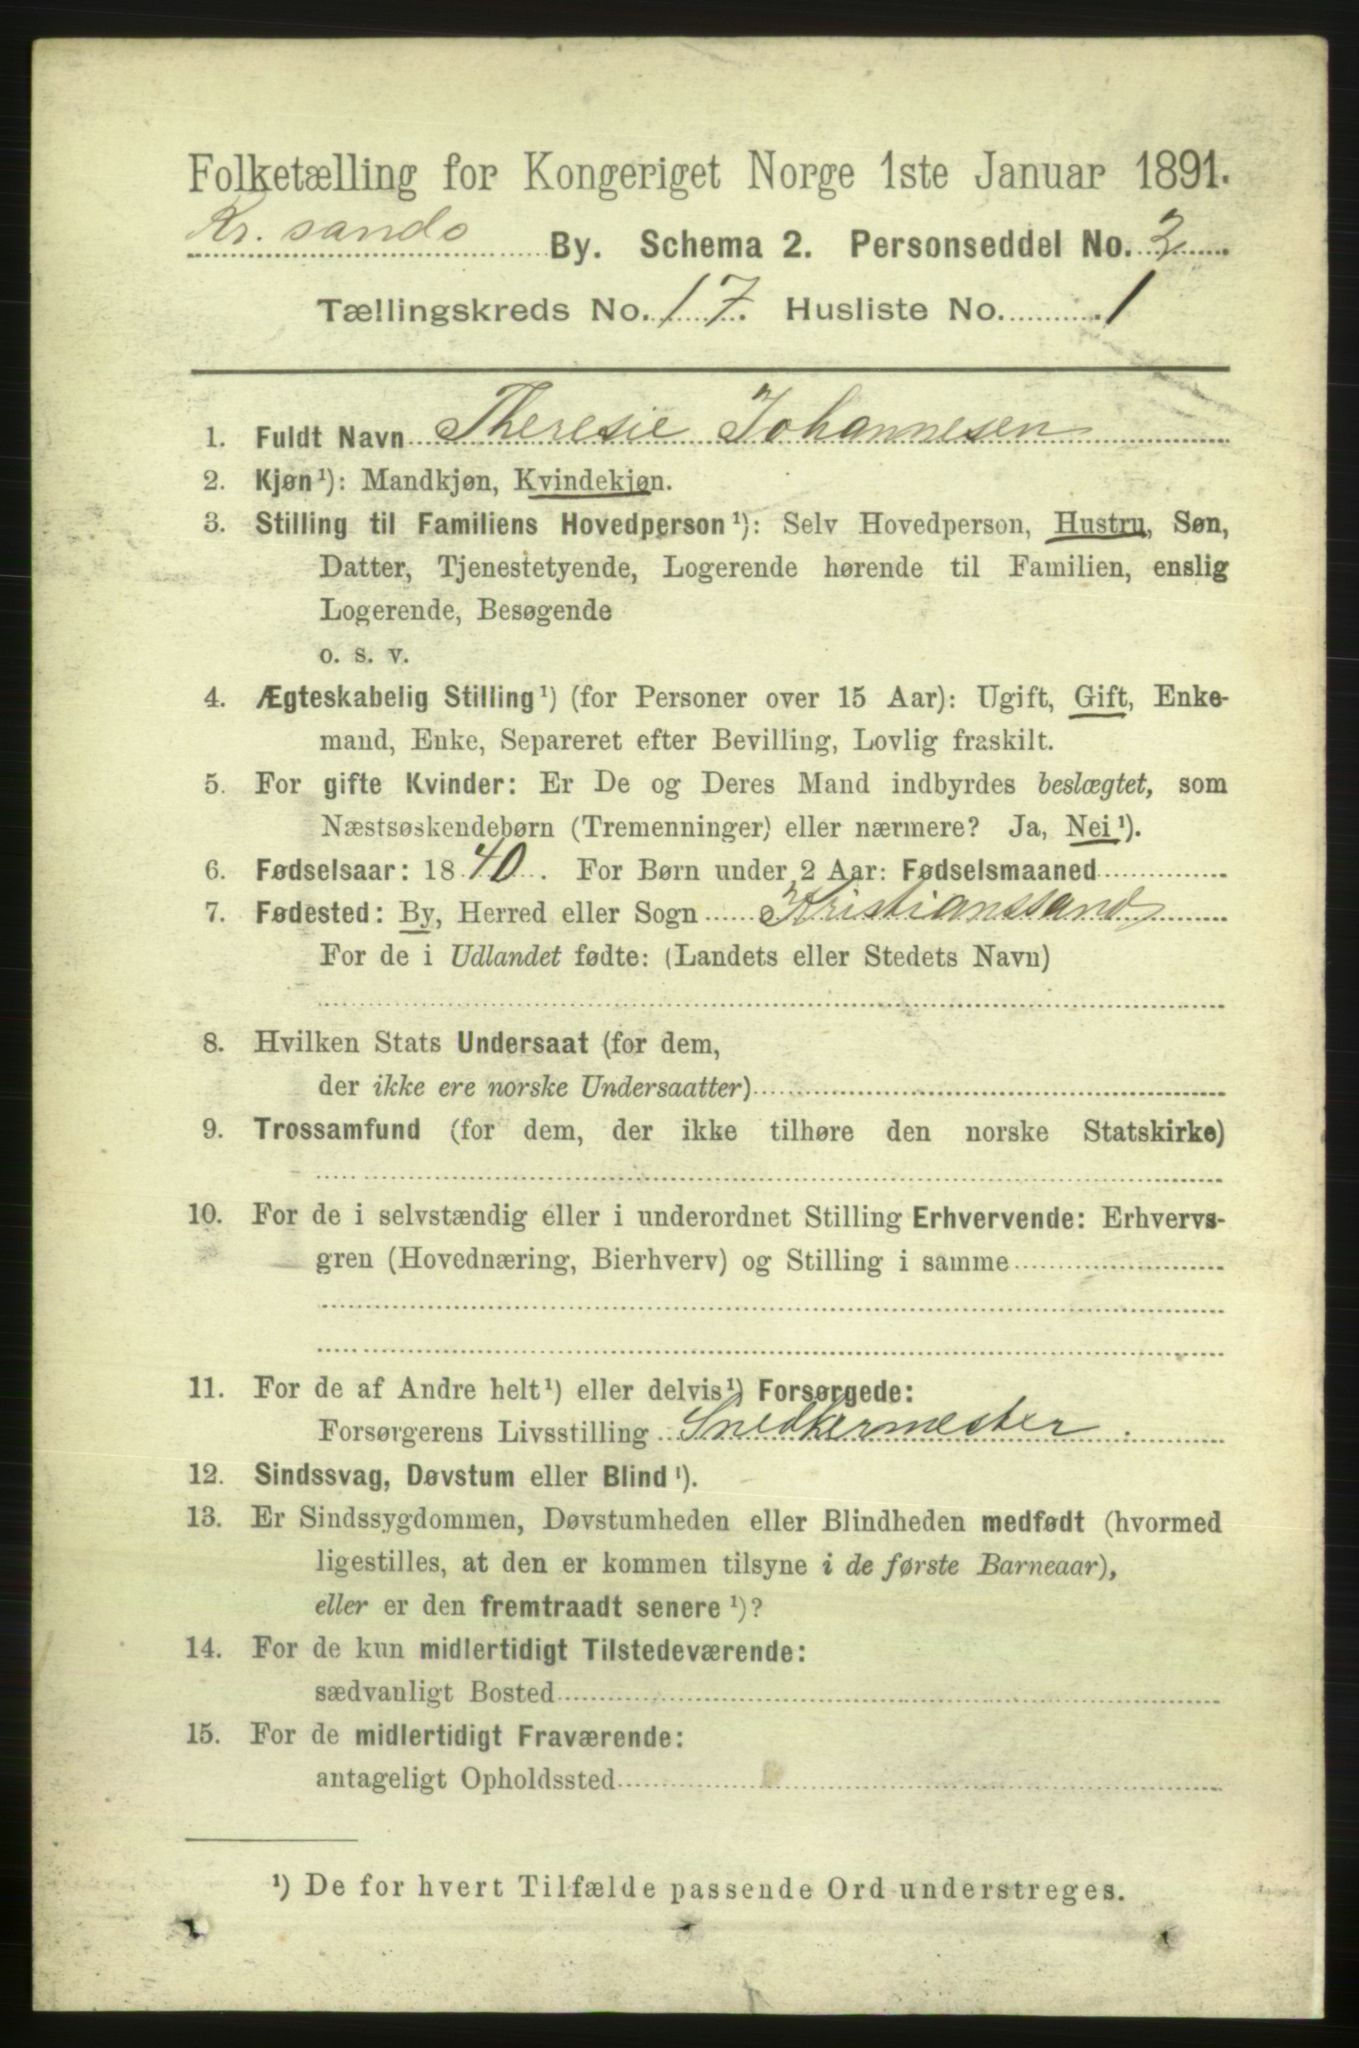 Folketælling for Kongeriget Norge 1ste Januar 1891.
Kr.sands By. Schema 2. Personseddel No. 2
Tællingskreds No. 17. Husliste No. 1
1. Fuldt Navn Theresie Johannesen
2. Kjøn¹): Mandkjøn, Kvindekjøn.
3. Stilling til Familiens Hovedperson¹): Selv Hovedperson, Hustru, Søn,
Datter, Tjenestetyende, Logerende hørende til Familien, enslig
Logerende, Besøgende
o. s. v.
4. Ægteskabelig Stilling¹) (for Personer over 15 Aar): Ugift, Gift, Enke-
mand, Enke, Separeret efter Bevilling, Lovlig fraskilt.
5. For gifte Kvinder: Er De og Deres Mand indbyrdes beslægtet, som
Næstsøskendebørn (Tremenninger) eller nærmere? Ja, Nei¹).
6. Fødselsaar: 1840. For Børn under 2 Aar: Fødselsmaaned
7. Fødested: By, Herred eller Sogn Kristianssand
For de i Udlandet fødte: (Landets eller Stedets Navn)
8. Hvilken Stats Undersaat (for dem,
der ikke ere norske Undersaatter)
9. Trossamfund (for dem, der ikke tilhøre den norske Statskirke)
10. For de i selvstændig eller i underordnet Stilling Erhvervende: Erhvervs-
gren (Hovednæring, Bierhverv) og Stilling i samme
11. For de af Andre helt¹) eller delvis¹) Forsørgede:
Forsørgerens Livsstilling Snedkermester.
12. Sindssvag, Døvstum eller Blind¹).
13. Er Sindssygdommen, Døvstumheden eller Blindheden medfødt (hvormed
ligestilles, at den er kommen tilsyne i de første Barneaar),
eller er den fremtraadt senere¹)?
14. For de kun midlertidigt Tilstedeværende:
sædvanligt Bosted
15. For de midlertidigt Fraværende:
antageligt Opholdssted
¹) De for hvert Tilfælde passende Ord understreges.